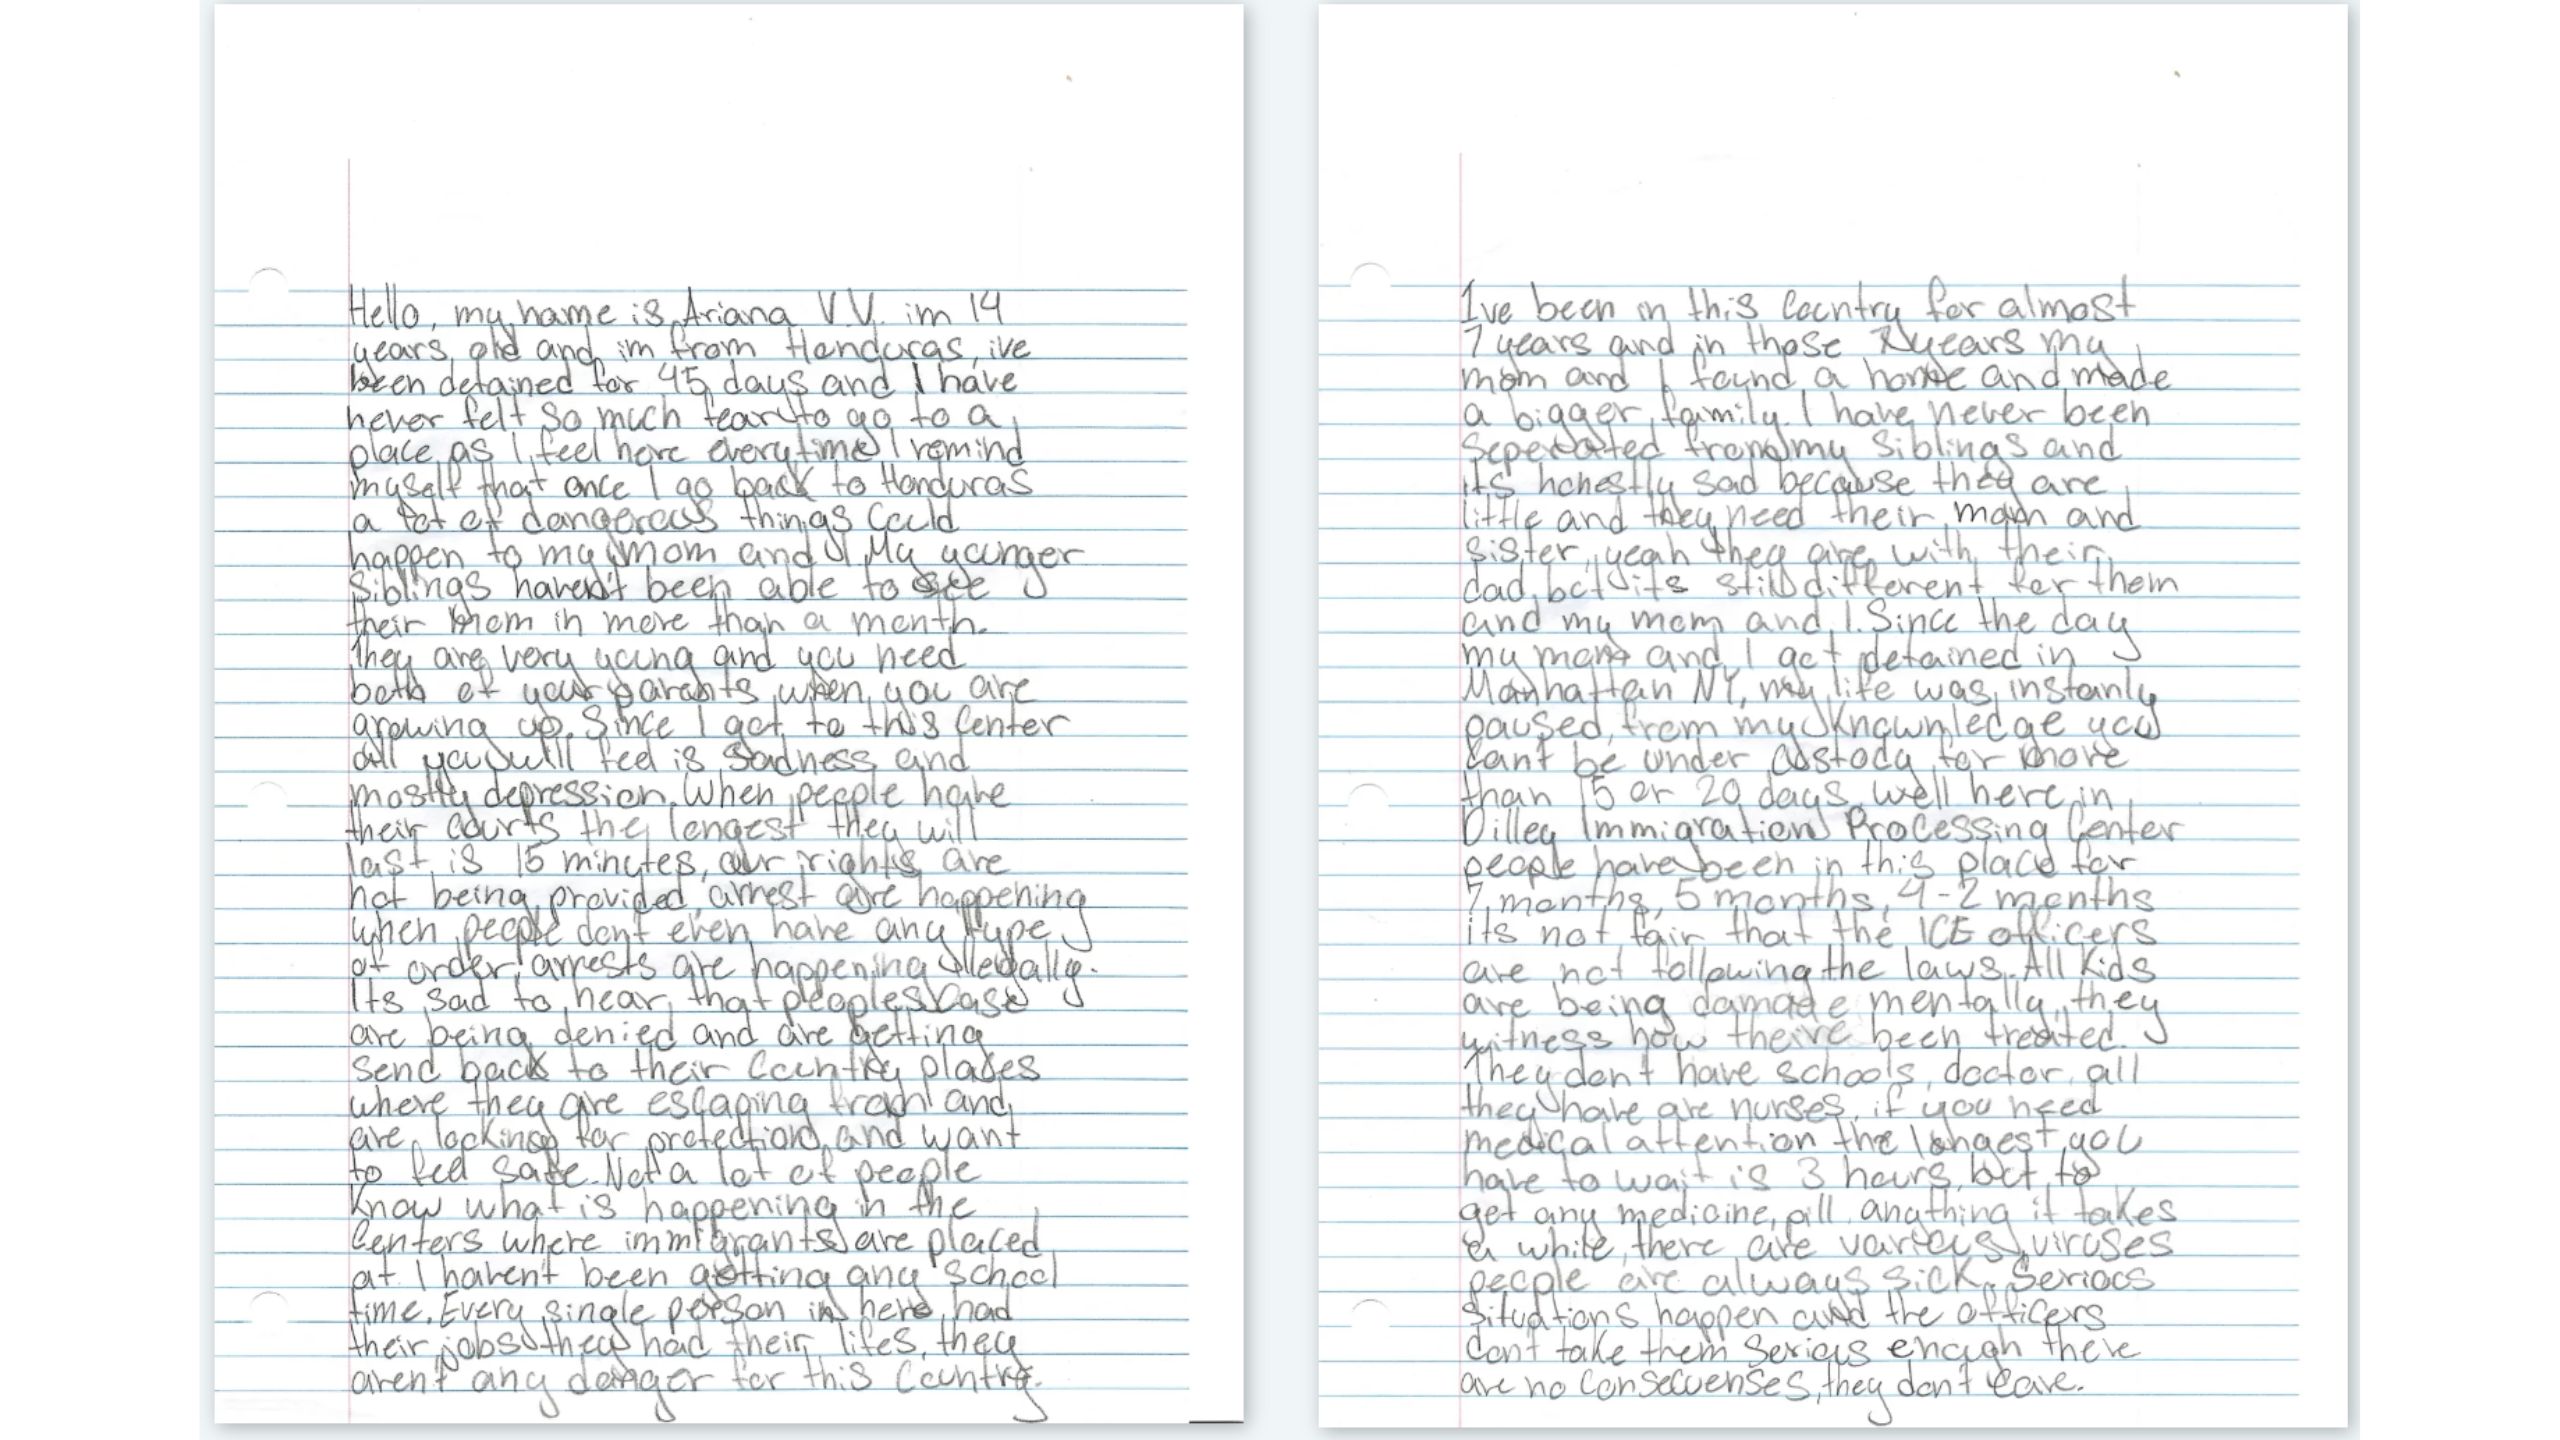 Hello, my name is Ariana V.V. im 14
years old and im from Honduras, ive
been detained for 45 days and I have
never felt so much fear to go to a
place as I feel here everytime I remind
myself that once I go back to Honduras
a lot of dangerous things could
happen to my mom and I. My younger
siblings haven't been able to see
their mom in more than a month.
They are very young and you need
both of your parents when you are
growing up. Since I got to this Center
all you will feel is sadness and
mostly depression. When people have
their courts the longest they will
last is 15 minutes, our rights are
not being provided, arrest are happening
when people dont even have any type
of order, arrests are happening illegally.
Its sad to hear that peoples case
are being denied and are getting
send back to their Country places
where they are escaping from and
are looking for protection and want
to feel safe. Not a lot of people
know what is happening in the
Centers where immigrants are placed
at. I haven't been getting any school
time. Every single person in here had
their jobs they had their lifes, they
aren't any danger for this Country.
Ive been in this Country for almost
7 years and in those 7 years my
mom and I found a home and made
a bigger family. I have never been
seperated from my siblings and
its honestly sad because they are
little and they need their mom and
sister, yeah they are with their
dad, but its still different for them
and my mom and I. Since the day
my mom and I got detained in
Manhattan NY, my life was instanly
paused, from my knownledge you
cant be under custody for more
than 15 or 20 days, well here in
Dilley Immigration Processing Center
people have been in this place for
7 months, 5 months, 4-2 months
its not fair that the ICE officers
are not following the laws. All Kids
are being damage mentally, they
witness how theire been treated.
They don't have schools, doctor, all
they have are nurses, if you need
medical attention the longest you
have to wait is 3 hours, but to
get any medicine, pill, anything it takes
a while, there are various viruses
people are always sick. Serious
situations happen and the officers
don't take them serious enough there
are no consecuenses, they don't care.